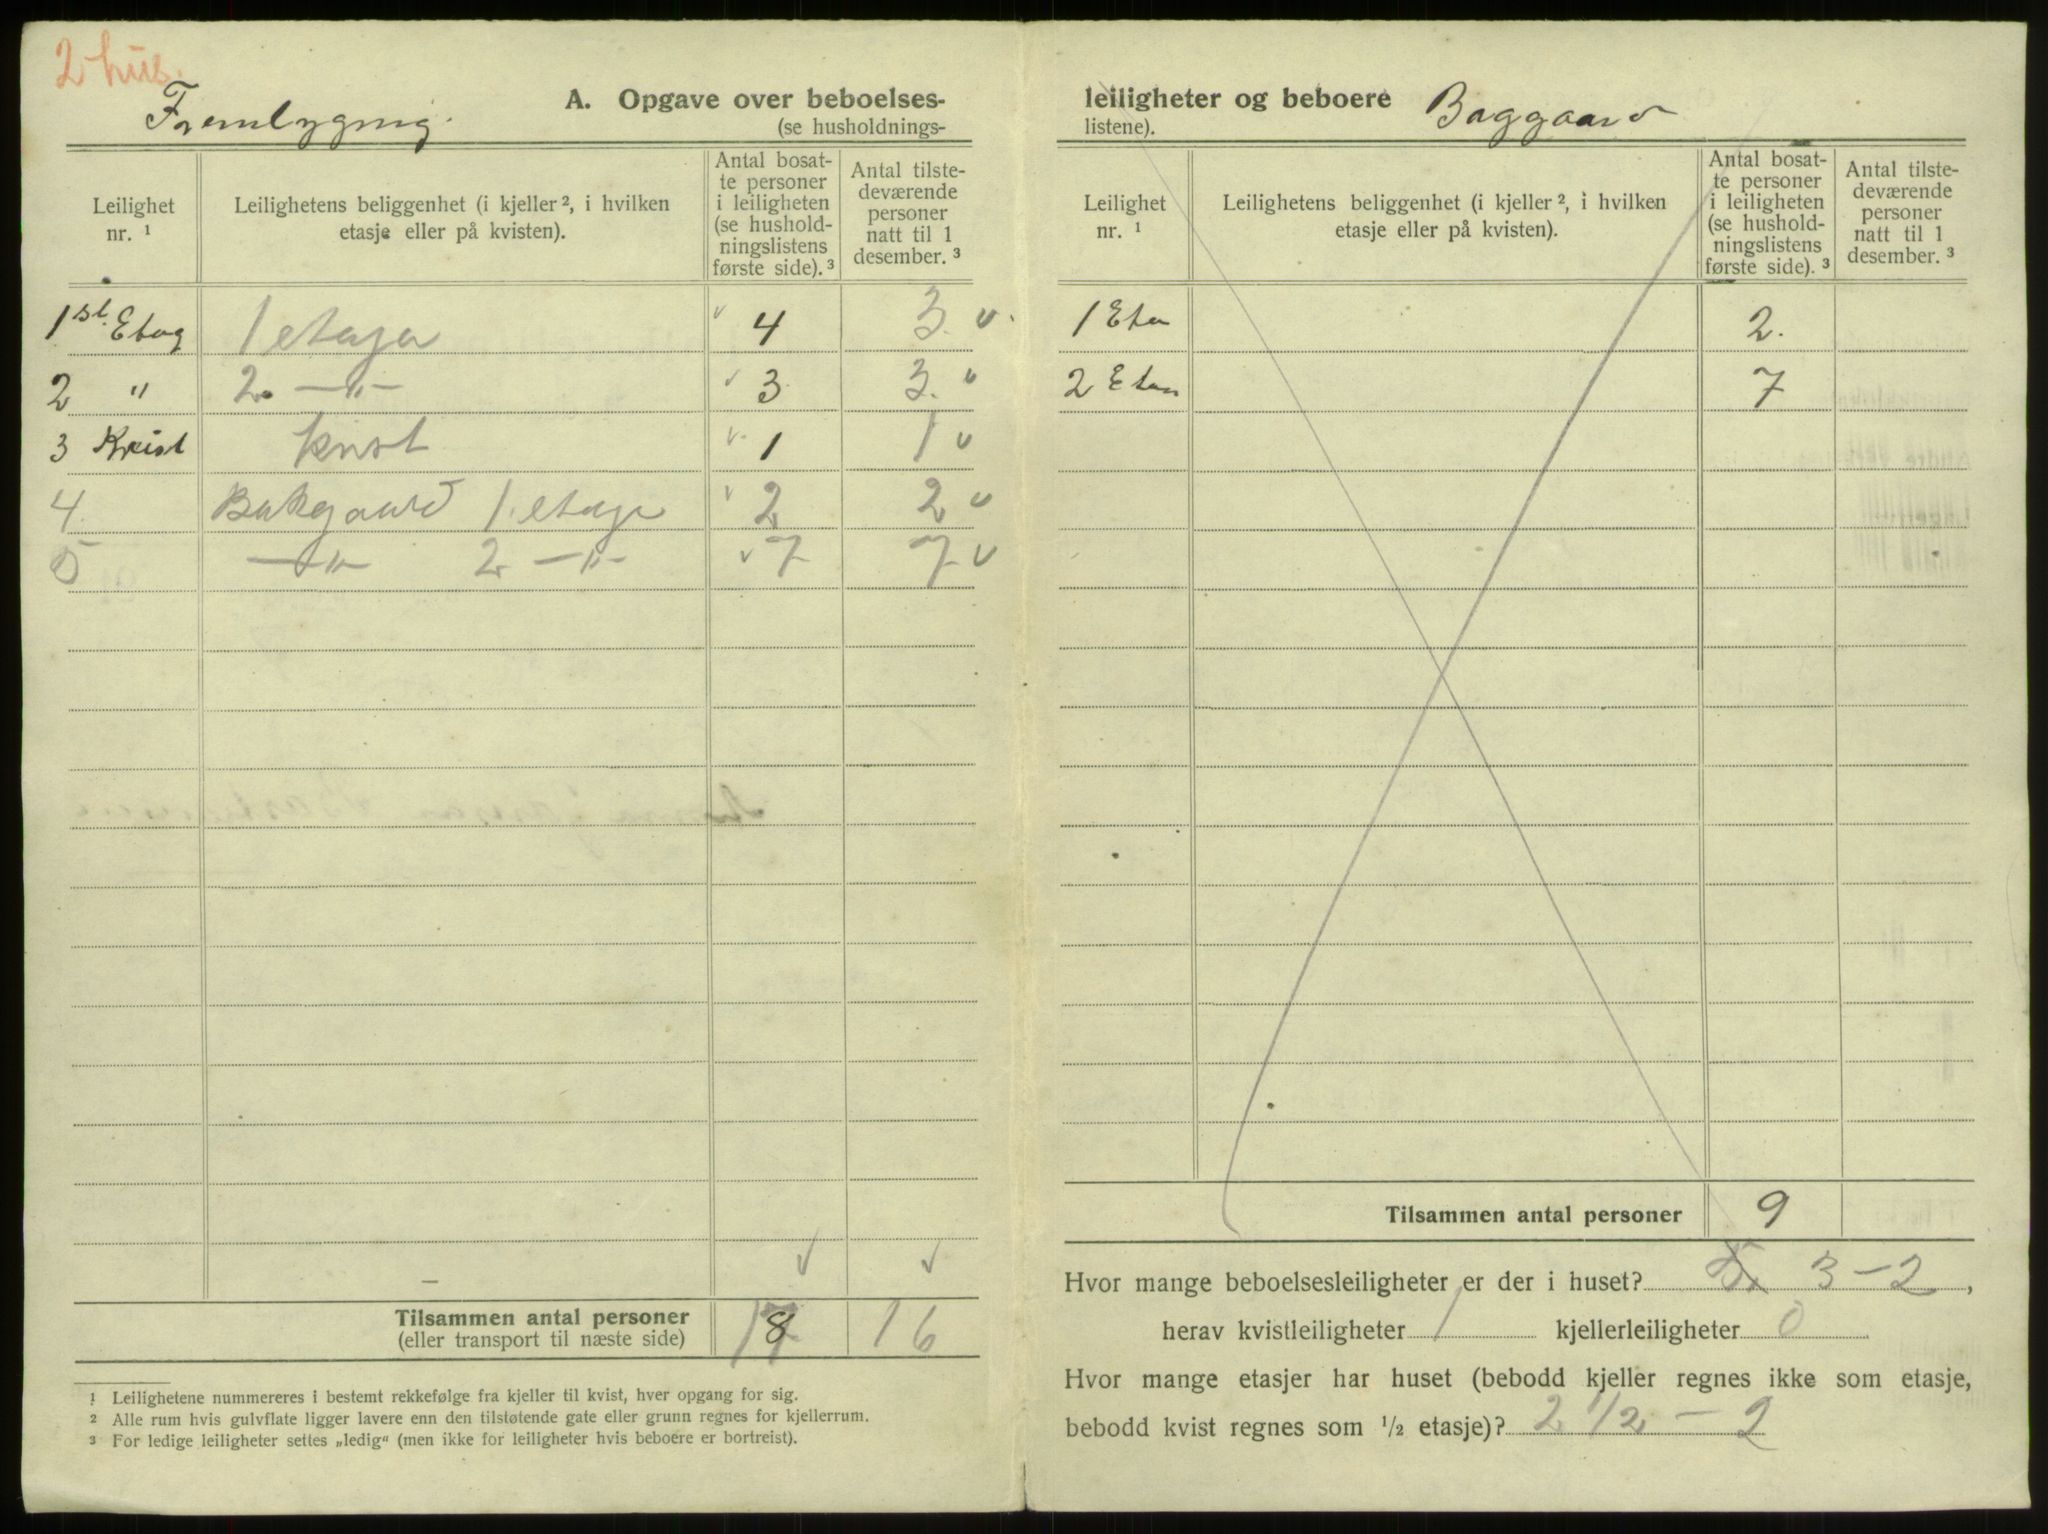 2 hus.
Frembygning.
A. Opgave over beboelses-
(se husholdnings-
Leilighet nr. 1
Leilighetens beliggenhet (i kjeller 2, i hvilken etasje eller på kvisten).
Antal bosatte personer i leiligheten (se husholdningslistens første side). 3
Antal tilstedeværende personer natt til 1 desember. 3
1 st. Etag 1 etasje v 4 3. v.
2 " 2. —"— v 3 3. v
3 Kvist kvist v. 1 1 v
4. Bakgaard 1. etasje v 2 2 v
5 —"— 2 —"— v 7 7 v
v v
Tilsammen antal personer
(eller transport til næste side) 8 17 16
1 Leilighetene nummereres i bestemt rekkefølge fra kjeller til kvist, hver opgang for sig.
2 Alle rum hvis gulvflate ligger lavere enn den tilstøtende gate eller grunn regnes for kjellerrum.
3 For ledige leiligheter settes „ledig“ (men ikke for leiligheter hvis beboere er bortreist).
leiligheter og beboere Baggaard
listene).
Leilighet nr. 1
Leilighetens beliggenhet (i kjeller 2, i hvilken etasje eller på kvisten).
Antal bosatte personer i leiligheten (se husholdningslistens første side). 3
Antal tilstedeværende personer natt til 1 desember. 3
1 Eta 2.
2 Etas 7
Tilsammen antal personer 9
Hvor mange beboelsesleiligheter er der i huset? 5. 3 – 2,
herav kvistleiligheter 1 kjellerleiligheter 0
Hvor mange etasjer har huset (bebodd kjeller regnes ikke som etasje,
bebodd kvist regnes som 1/2 etasje)? 2 1/2 – 2